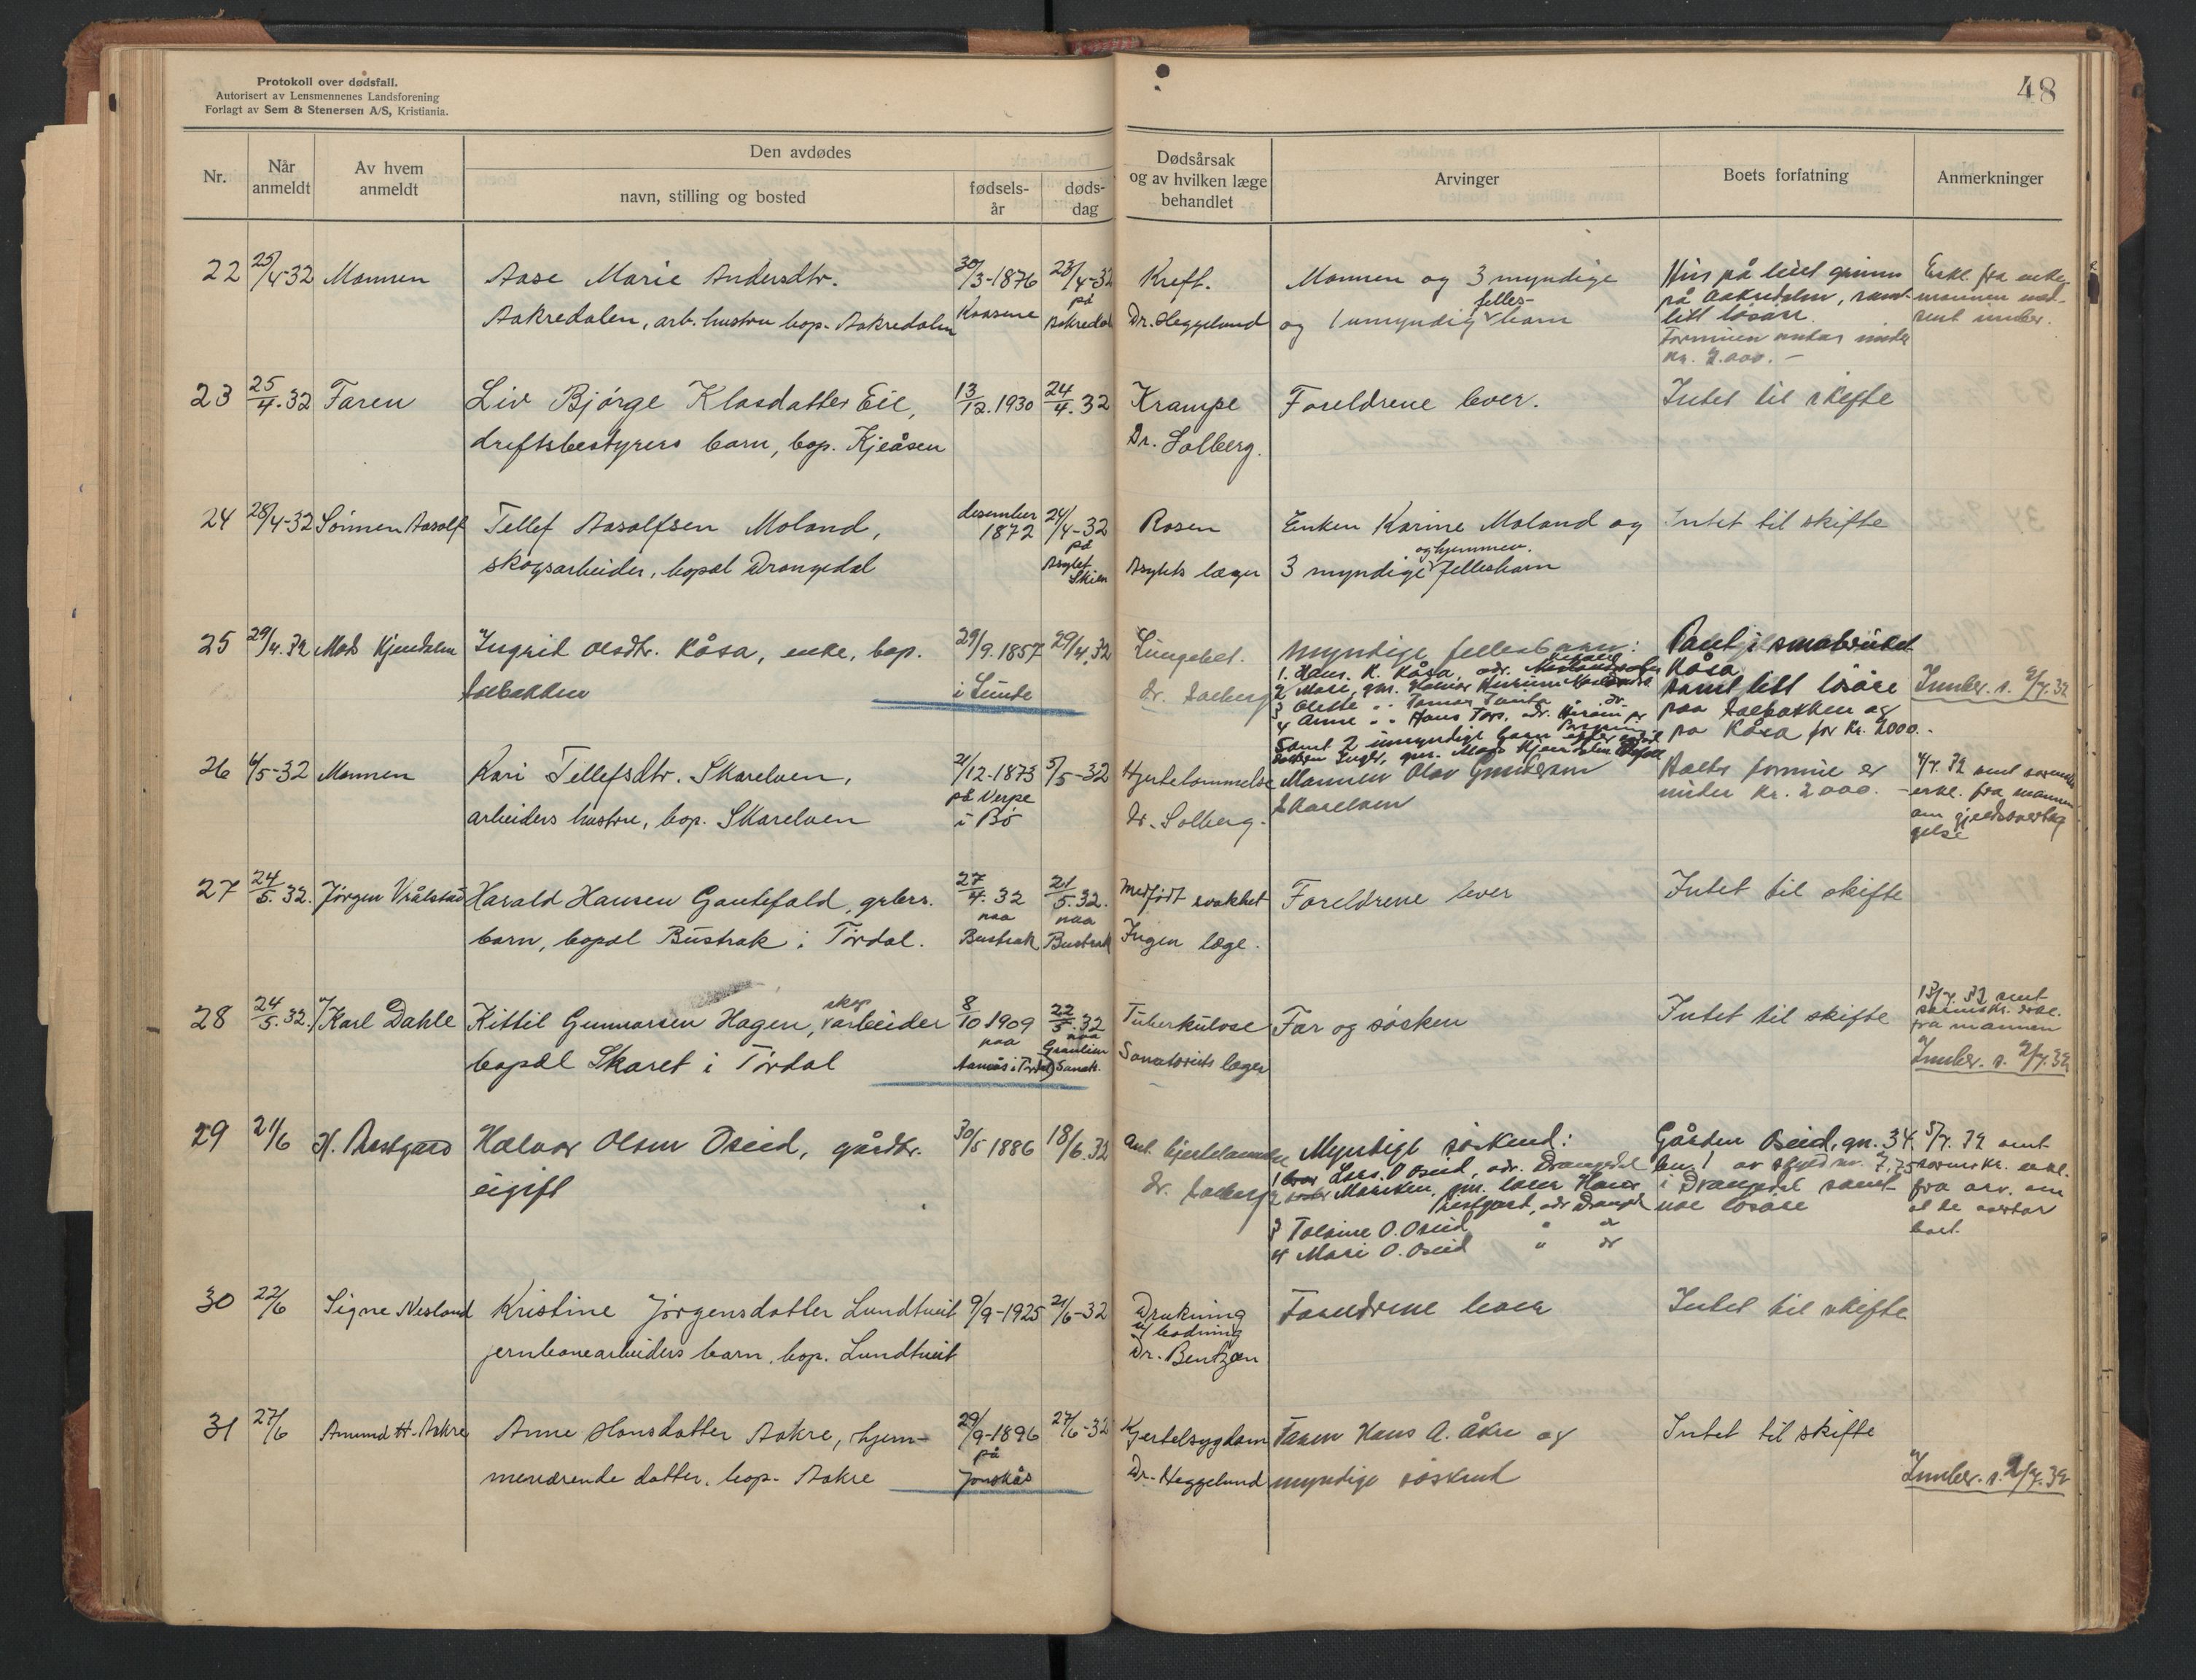 Protokoll over dødsfall.
Autorisert av Lensmennenes Landsforening
Forlagt av Sem & Stenersen A/S, Kristiania.
48
Nr.
Når anmeldt
Av hvem anmeldt
Den avdødes
navn, stilling og bosted
fødsels-år
døds-dag
Dødsårsak og av hvilken læge behandlet
Arvinger
Boets forfatning
Anmerkninger
22 25/4-32 Mannen Aase Marie Andersdtr. 30/3-1876 23/4-32 Kreft. Mannen og 3 myndige Hus på leiet grunn Erkl. fra enke-
Aakredalen, arb. hustru bop. Aakredalen Kaasene på Aakredal Dr. Heggelund og 1 umyndig felles-barn på Aakredalen, samt mannen
litt løsøre.
Formuen antas under
kr. 2.000.-
23 25/4.32 Faren Liv Bjørge Klasdatter Eie, 13/12.1930 24/4.32 Krampe Foreldrene lever. Intet til skifte
driftsbestyrers barn, bop. Kjeåsen Dr. Solberg.
24 28/4-32 Sønnen Aasolf Tellef Aasolfsen Moland, desember 1872 24/4-32 Rosen Enken Karine Moland og Intet til skifte
skogsarbeider, bopæl Drangedal på Asylet Skien Asylets læger 3 myndige og hjemmev. fellesbarn
25 29/4.32 Mads Kjendalen Ingrid Olsdtr. Kåsa, enke, bop. 29/9.1857 29/4.32 Lungebet. Myndige fellesbarn: Pant i småbruket
Solbakken i Lunde Dr. Solberg 1. Hans. K. Kåsa, adr. Kåsa
samt litt løsøre Innber. s. 2/7.32
paa Solbakken og
på Kåsa for kr. 2000.-
26 6/5-32 Mannen Kari Tellefsdtr. Skarelven, 21/12-1873 5/5-32 Hjertelammelse Mannen Olav Gundersen Boets formue er
arbeiders hustru, bop. Skarelven på Verpe i Bø Dr. Solberg. Skarelven under kr. 2000.- erkl. fra mannen
om gjeldsovertagelse
27 24/5.32. Jørgen Vrålstad Harald Hansen Gautefald, grbrs. 27/4.32 21/5.32. Medfødt svakhet Foreldrene lever Intet til skifte
barn, bopæl Bustrak i Tørdal. paa Bustrak paa Bustrak Ingen læge.
28 24/5.32. Karl Dahle Kittil Gunnarsen Hagen, skogsarbeider 8/10 1909 22/5.32 Tuberkulose Far og søsken Intet til skifte 13/7.32 sent
bopæl Skaret i Tørdal paa Aamås i Tørdal paa Granlien Sanat. Sanatoriets læger skriftl. erkl.
fra mannen
Innber. s. 2/7.32
29 21/6 H. Prestgard Halvor Olsen Oseid, gårdbr. 30/5 1886 18/6.32 Ant. hjertelammelse Myndige søskend: Gården Oseid, gn. 34 5/7.32 sent
ugift Dr. Solberg 1 bror Lars O Oseid, adr. Drangedal bn. 1 av skyld mr. 7,75 skr. erkl.
2 søster Mariken, gm. Prestgard, adr. Drangedal i Drangedal samt fra arv. om
noe løsøre at de overtar
3 Tolvine O. Oseid " do boet.
4 Mari O. Oseid " do
30 22/6 Signe Nesland Kristine Jørgensdatter Lundtveit 9/9-1925 21/6-32 Drukning Foreldrene lever Intet til skifte
jernbanearbeiders barn, bop. Lundtveit u/ badning
Dr. Bentzen
31 27/6 Amund H. Aakre Anne Hansdatter Aakre, hjem- 29/9-1896 27/6-32 Hjertesygdom Faren Hans A. Åkre og Intet til skifte
meværende datter, bop. Aakre på Jonskås Dr. Heggelund myndige søskend Innber. s. 2/7.32